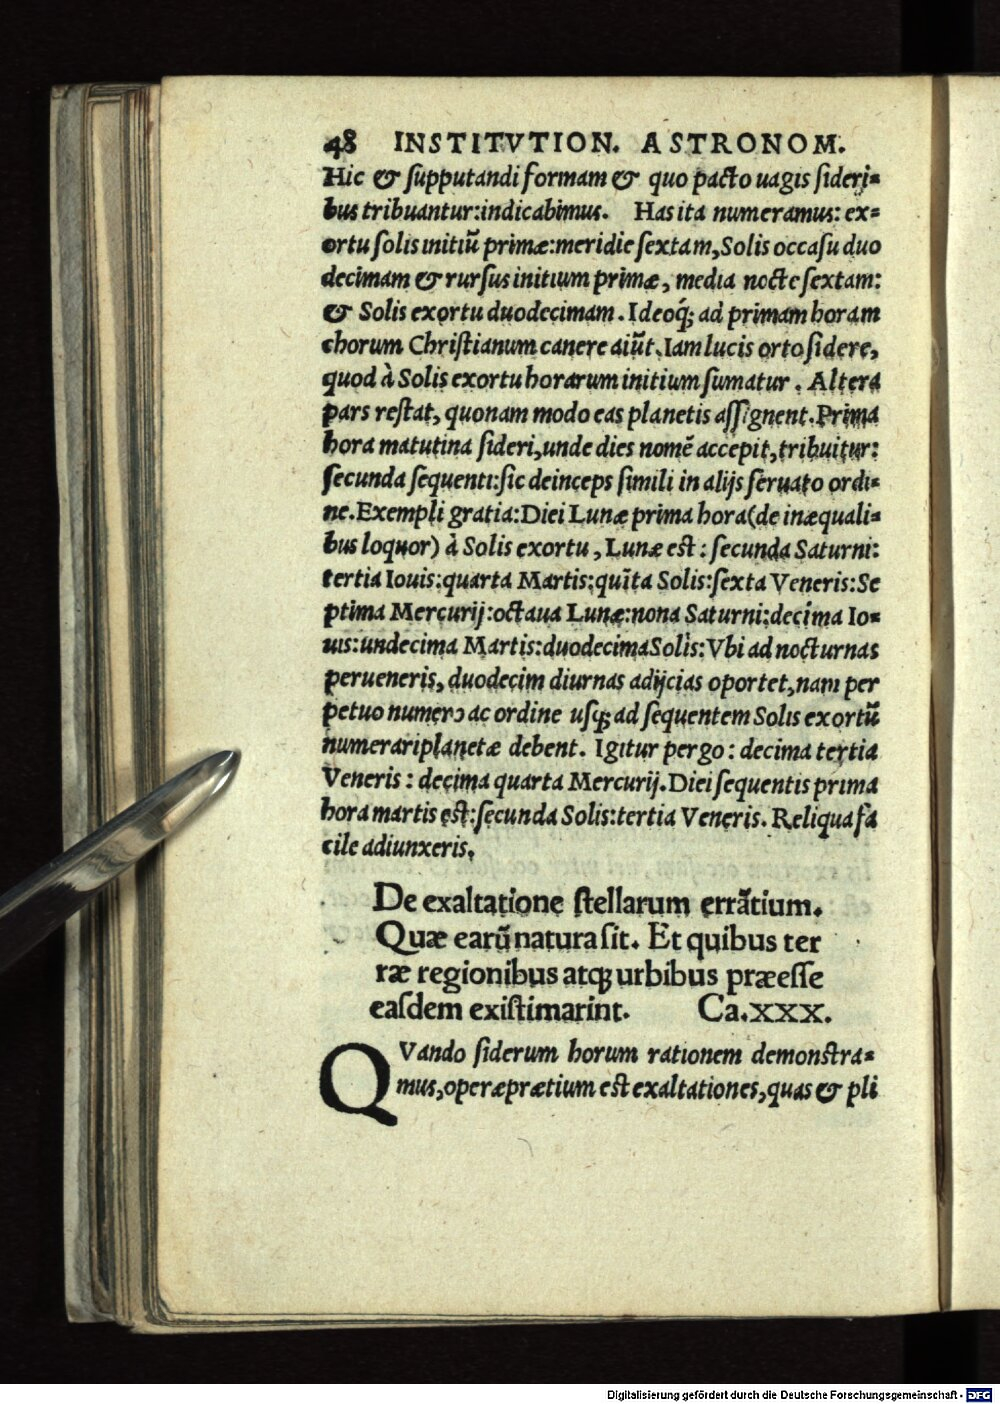 48 INSTITVTION. ASTRONOM.
Hic & ſupputandi formam & quo pacto uagis ſideri⸗
bus tribuantur:indicabimus. Has ita numeramus: ex⸗
ortu ſolis initiū primæ:meridie ſextam, Solis occaſu duo
decimam & rurſus initium primæ, media nocte ſextam:
& Solis exortu duodecimam. Ideoq́; ad primam horam
chorum Chriſtianum canere aiūt. Iam lucis orto ſidere,
quod à Solis exortu horarum initium ſumatur. Altera
pars reſtat, quonam modo eas planetis aſſignent. Prima
hora matutina ſideri, unde dies nomē accepit, tribuitur:
ſecunda ſequenti: ſic deinceps ſimili in alijs ſeruato ordi⸗
ne. Exempli gratia: Diei Lunæ prima hora (de inæquali⸗
bus loquor) à Solis exortu, Lunæ eſt: ſecunda Saturni:
tertia Iouis: quarta Martis: quīta Solis: ſexta Veneris: Se
ptima Mercurij: octaua Lunæ: nona Saturni: decima Io⸗
uis: undecima Martis: duodecima Solis: Vbi ad nocturnas
perueneris, duodecim diurnas adijcias oportet, nam per
petuo numero ac ordine uſq; ad ſequentem Solis exortū
numerari planetæ debent. Igitur pergo: decima tertia
Veneris: decima quarta Mercurij. Diei ſequentis prima
hora martis eſt: ſecunda Solis: tertia Veneris. Reliqua fa
cile adiunxeris.
De exaltatione ſtellarum errātium.
Quæ earū natura ſit. Et quibus ter
ræ regionibus atq; urbibus præeſſe
eaſdem exiſtimarint. Ca.XXX.
QVando ſiderum horum rationem demonſtra⸗
mus, operæprætium eſt exaltationes, quas & pli
Digitalisierung gefördert durch die Deutsche Forschungsgemeinschaft - DFG